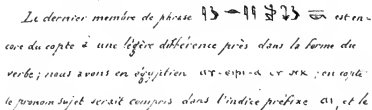 Le dernier membre de phrase est en-
core du copte à une légère différence près dans la forme du
verbe; nous avons en égyptien en copte
le pronom sujet serait compris dans l'indice préfixe ⲁⲓ, et le